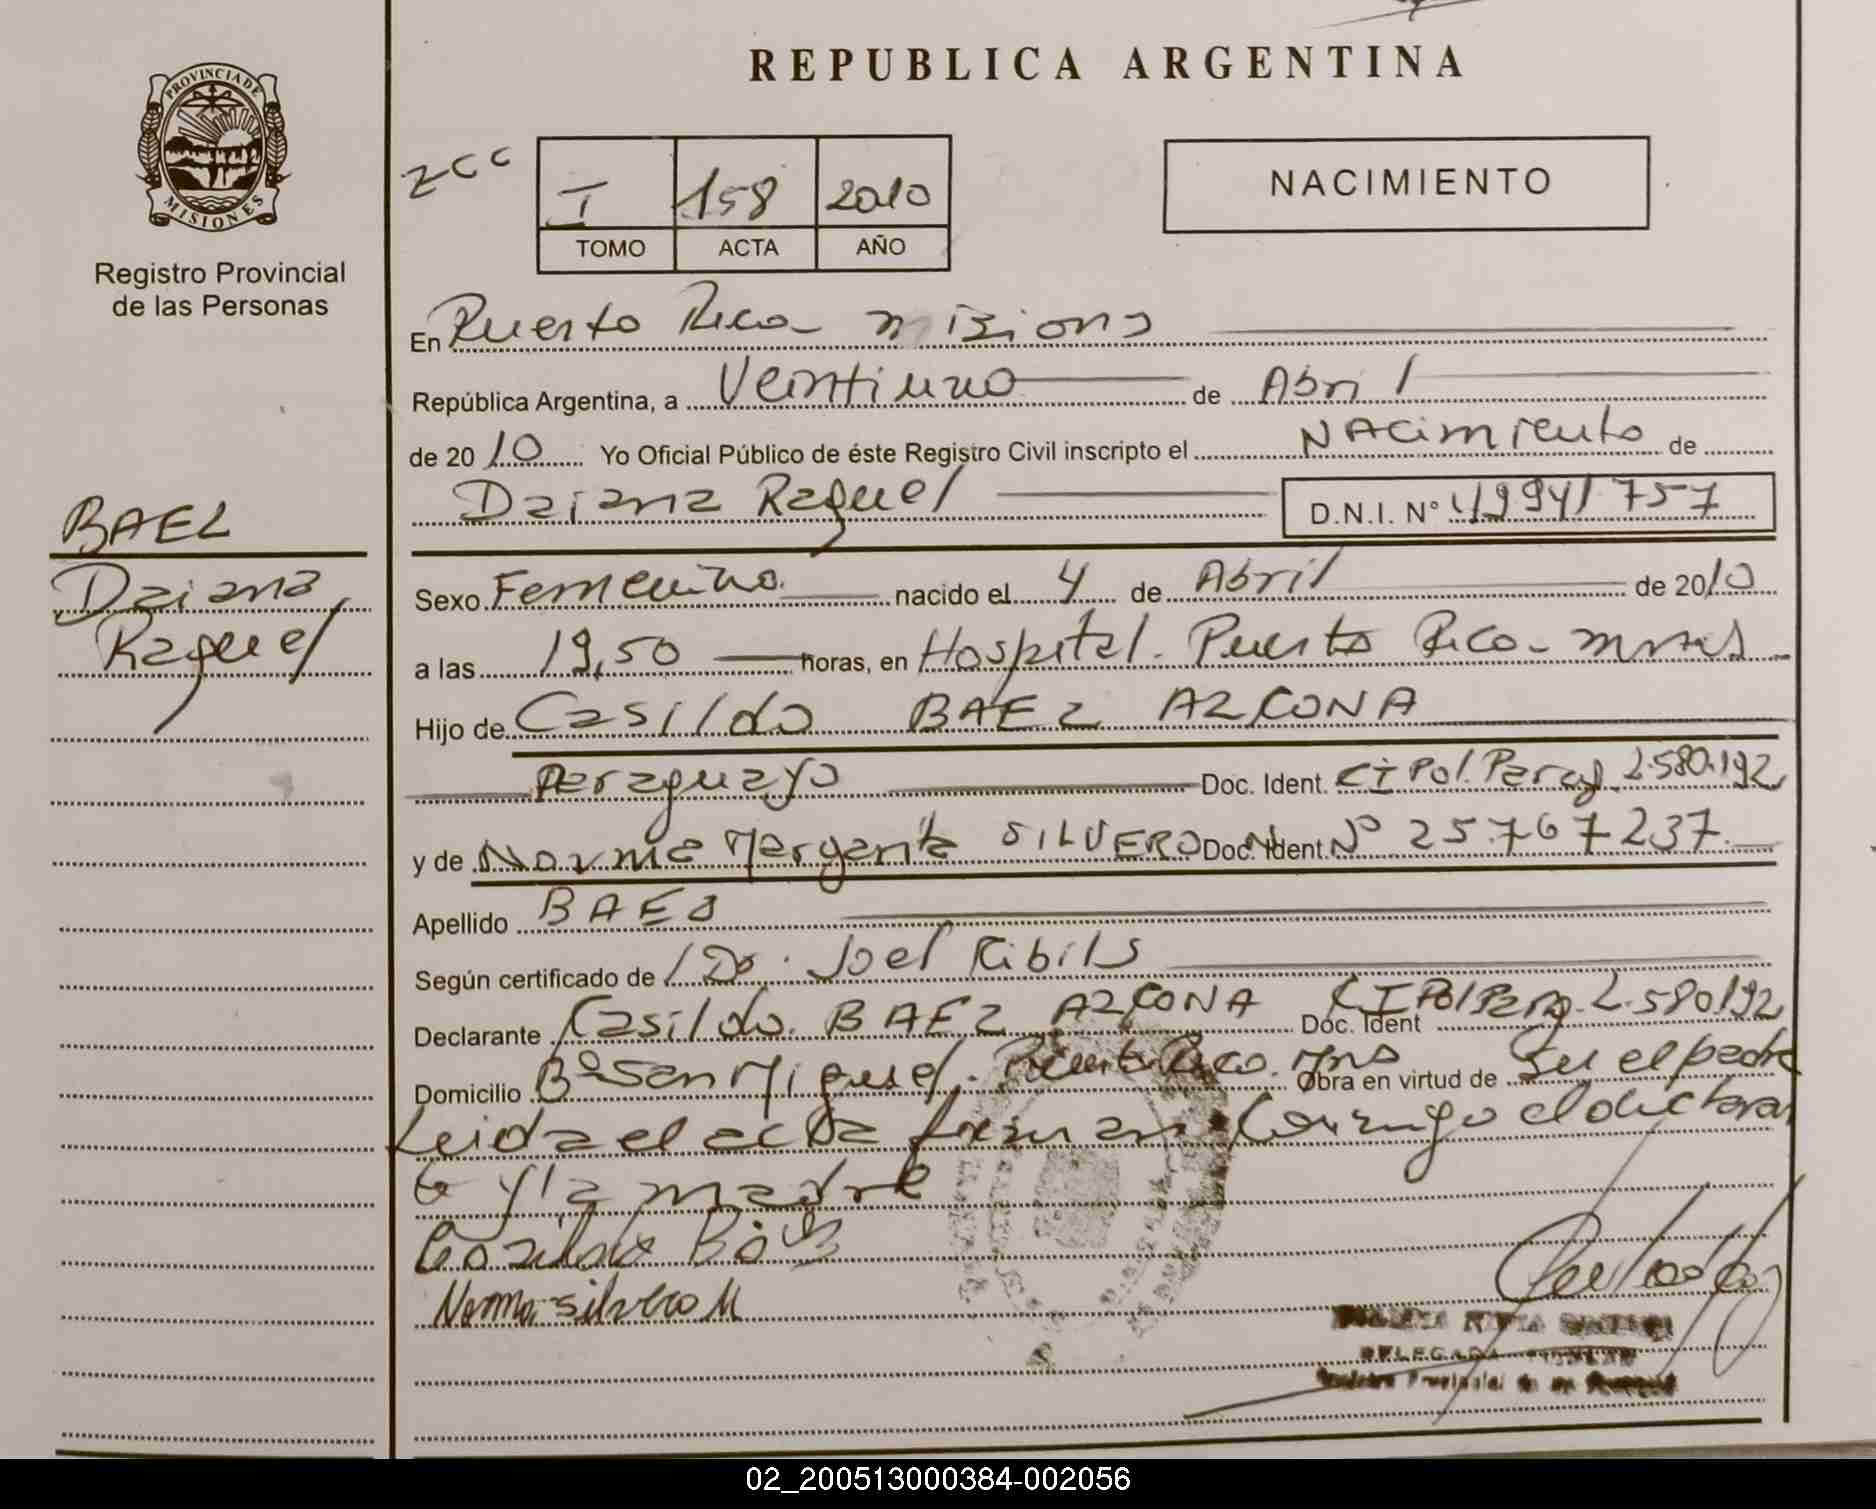 REPUBLICA ARGENTINA
PROVINCIA DE
MISIONES
Registro Provincial
de las Personas
zcc
I 158 2010
TOMO ACTA AÑO
NACIMIENTO
En Puerto Rico - misiones
República Argentina, a Veintiuno de Abril
de 2010 Yo Oficial Público de éste Registro Civil inscripto el NAcimiento de
Daiana Raquel D.N.I. Nº 49941757
BAEZ
Daiana
Raquel
Sexo Femenino. nacido el 4 de Abril de 2010
a las 19,50 horas, en Hospital. Puerto Rico - mnes
Hijo de Casildo BAEZ AZCONA
Paraguayo Doc. Ident. CI Pol. Parag. 2.580.192
y de Norma Margarita SILVERO Doc. Ident. Nº 25.767.237.
Apellido BAEZ
Según certificado de Dr. Joel Ribils
Declarante Casildo. BAEZ AZCONA Doc. Ident CI Pol Parag. 2.580.192
Domicilio Bº San Miguel. Puerto Rico. Mns Obra en virtud de ser el padre
Leida el acta firman conmigo el declaran
te y la madre
Casildo Báez
Norma silvero M
DELEGADA
Registro Provincial de las Personas
02_200513000384-002056